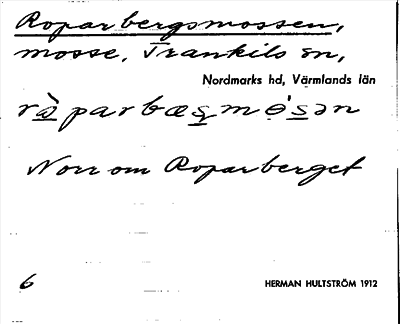 Roparbergsmossen,
mosse, Trankils sn,
Nordmarks hd, Värmlands län
rὰparbæs̱mo̱̍s̱ən
Norr om Roparberget
6
HERMAN HULTSTRÖM 1912